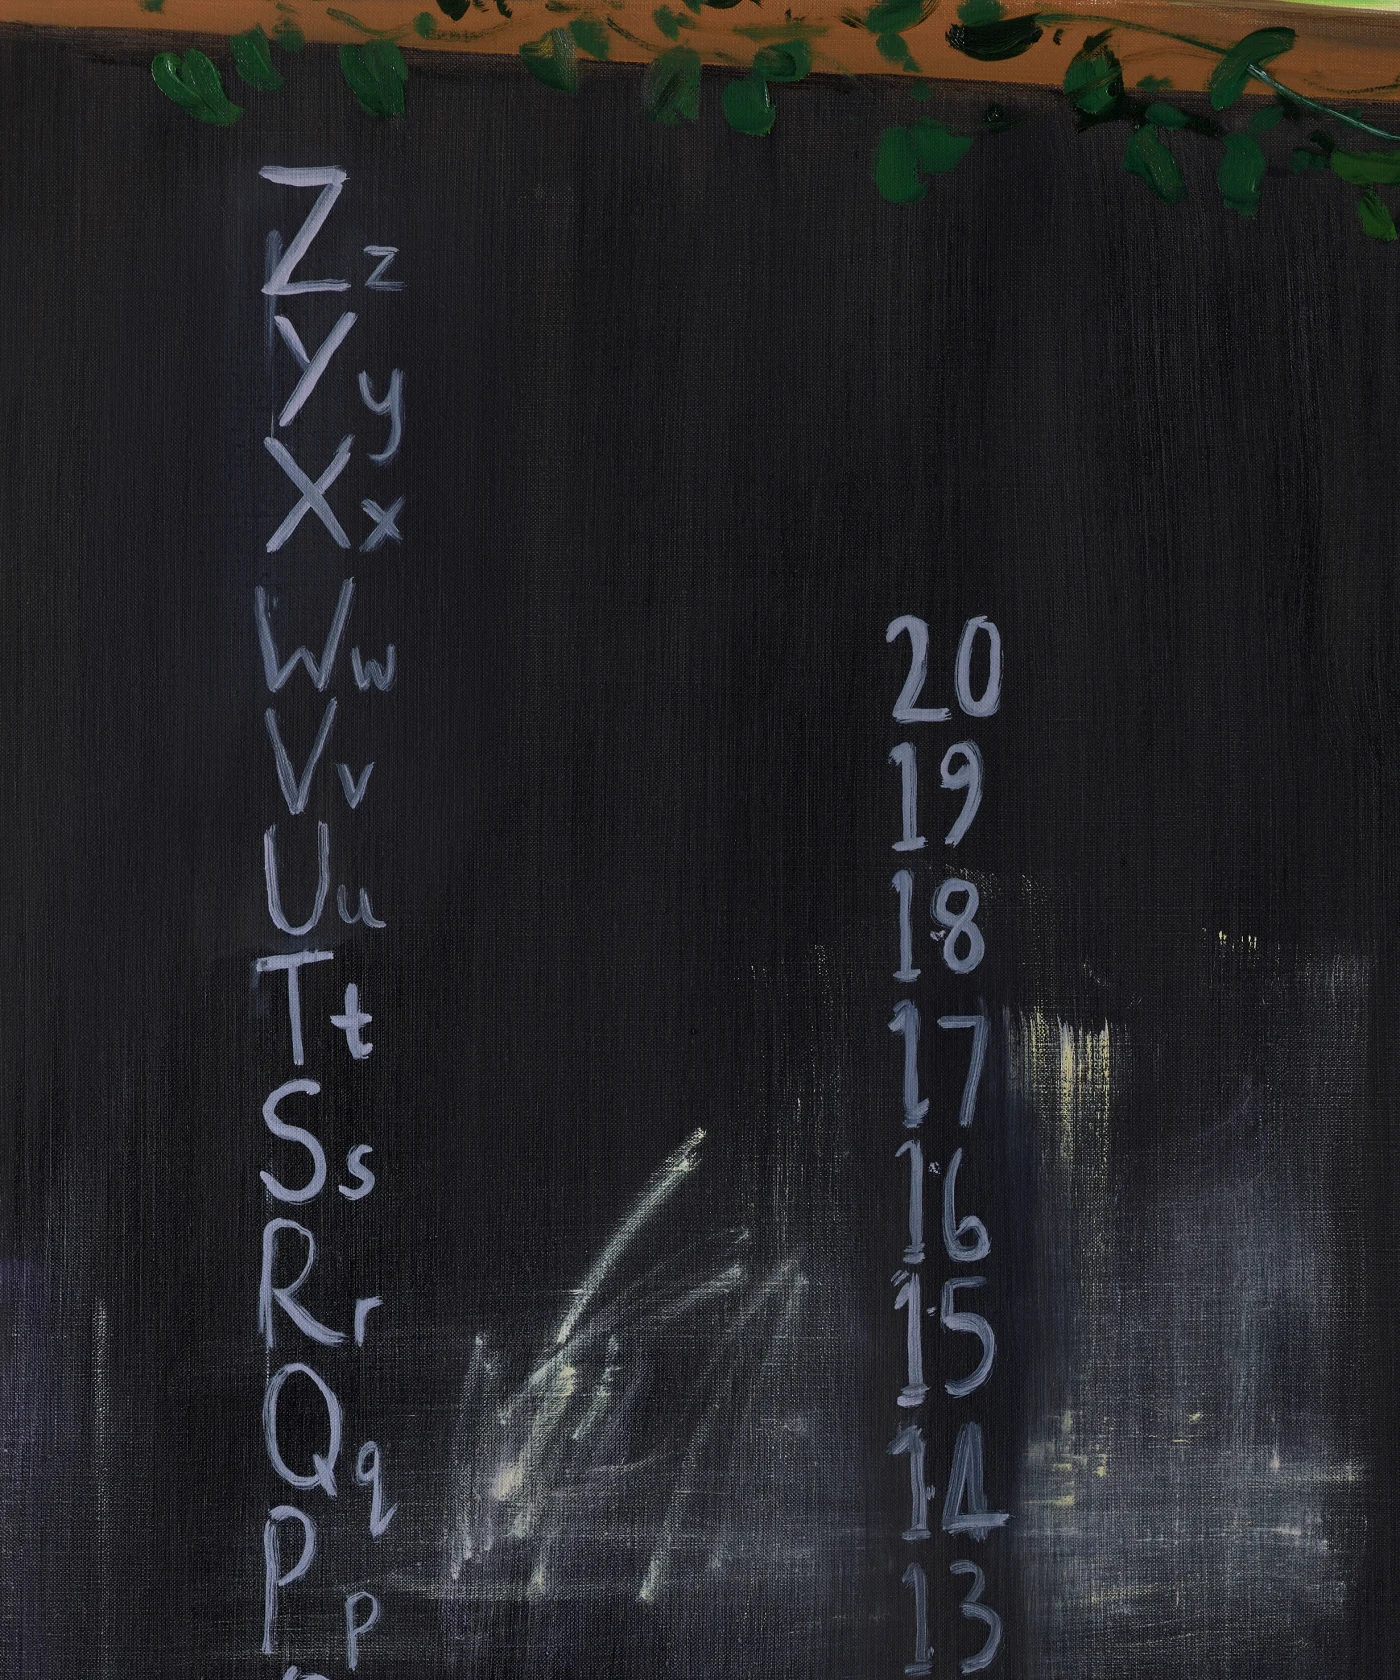 Zz
Yy
Xx
Ww
Vv
Uu
Tt
Ss
Rr
Qq
Pp
20
19
18
17
16
15
14
13